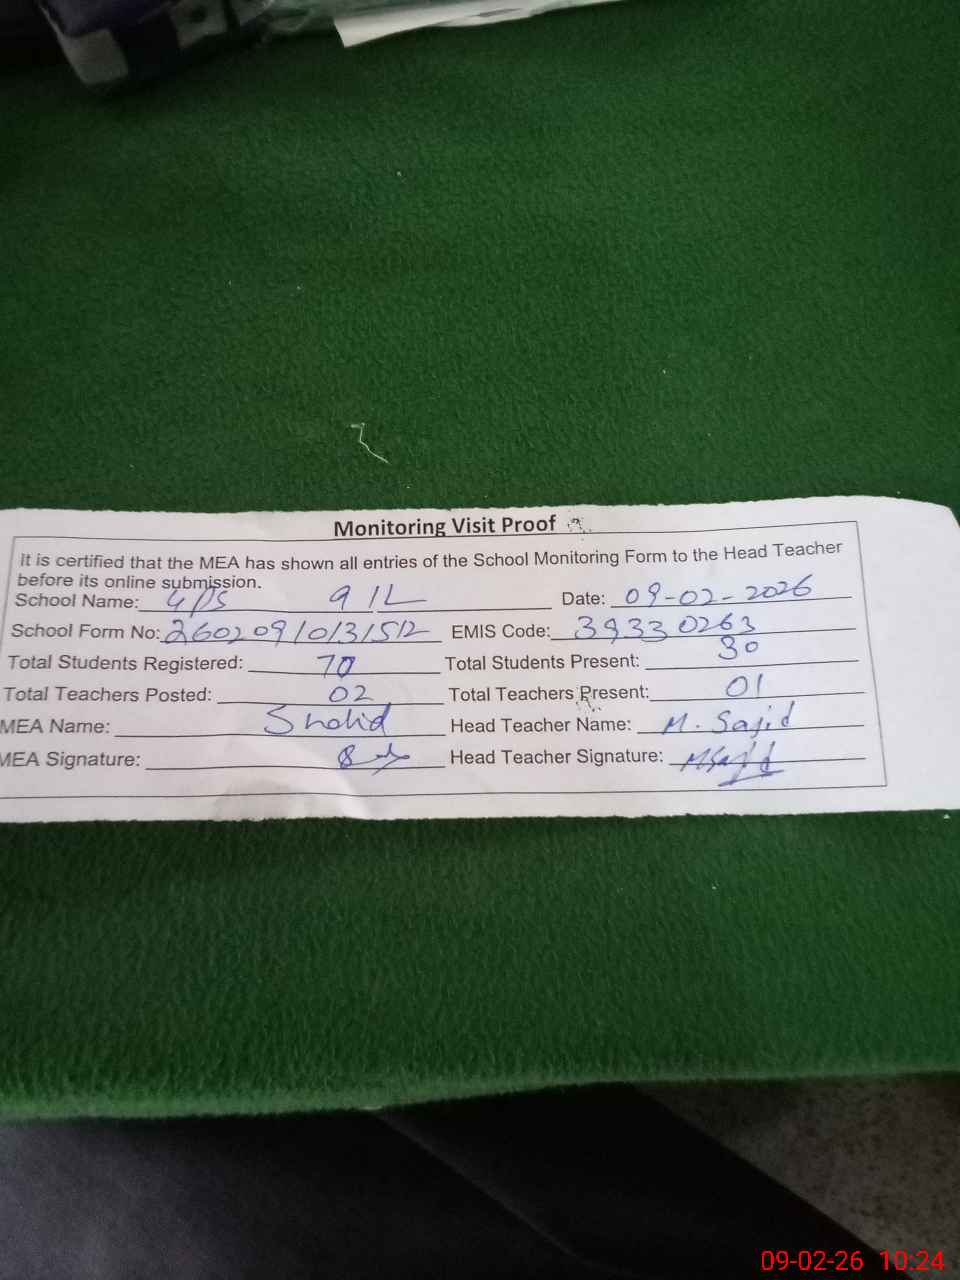 Monitoring Visit Proof
It is certified that the MEA has shown all entries of the School Monitoring Form to the Head Teacher
before its online submission.
School Name: GPS 9 1L Date: 09-02-2026
School Form No: 26020910131512 EMIS Code: 39330263
Total Students Registered: 70 Total Students Present: 30
Total Teachers Posted: 02 Total Teachers Present: 01
MEA Name: Shahid Head Teacher Name: M. Sajid
MEA Signature: Head Teacher Signature: MSajid
09-02-26 10:24